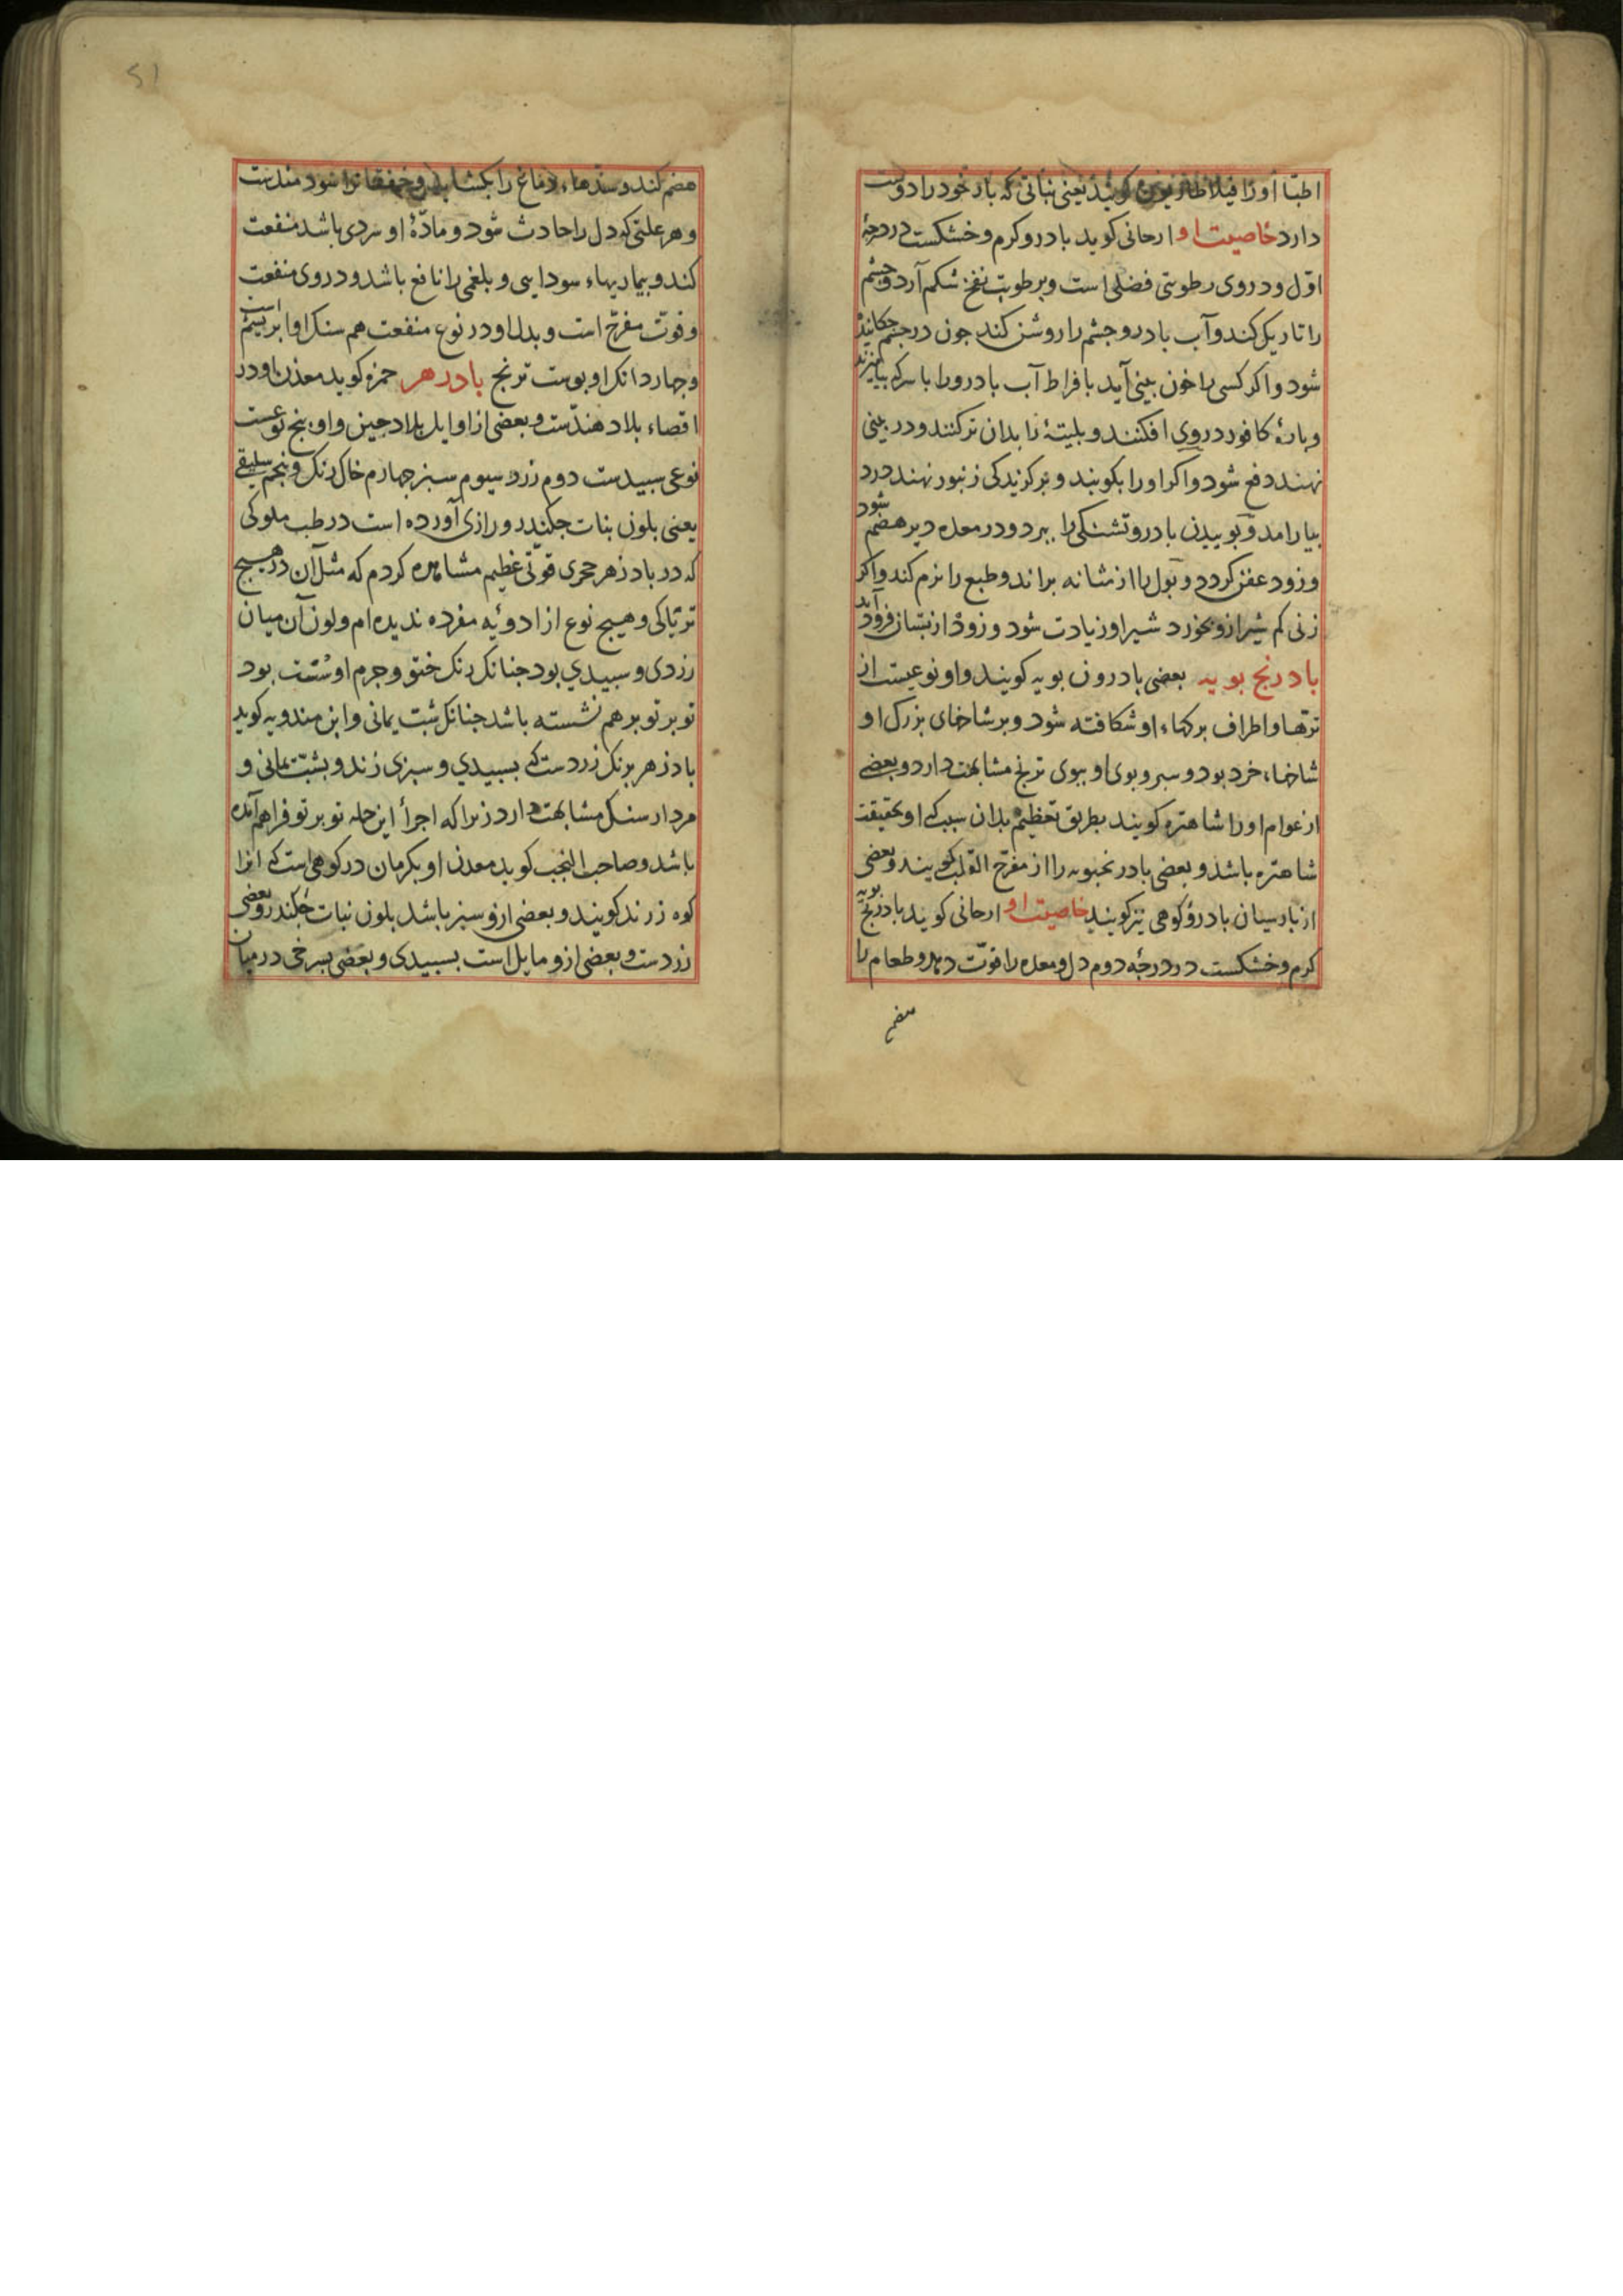 اطبا اورا فیلاطاریون کویند یعنی نباتی که بار خود را دوست
دارد خاصیت او ارحانی کوید بادرو کرم و خشکست در درجهٔ
اول و در وی رطوبتی فضلی است و برطوبت نفخ شکم آرد و چشم
را تاریک کند و آب بادرو چشم را روشن کند چون در چشم چکانیده
شود و اکر کسی را خون بینی آید بافراط آب بادرو را با سرکه بیامیزند
و پارهٔ کافور در وی افکنند و بلیتهٔ را بدان تر کنند و در بینی
نهند دفع شود و اکر او را بکوبند و بر کزیدکی زنبور نهند درد
بیارامد و بوییدن بادرو تشنکی را ببرد و در معده دیر هضم شود
و زود عفن کردد و بول را از مثانه براند و طبع را نرم کند و اکر
زنی کم شیر ازو بخورد شیر او زیادت شود و زود از پستان فرود آید
بادرنج بویه بعضی بادرون بویه کویند و او نوعیست از
ترها و اطراف برکهاء او شکافته شود و بر شاخهای بزرک او
شاخهاء خرد بود و سبر و بوی او ببوی ترنج مشابهت دارد و بعضی
از عوام او را شاهتره کویند بطریق تعظیم بدان سبب که او بحقیقت
شاهتره باشد و بعضی بادرنجبویه را از مفرح القلب کویند و بعضی
از پارسیان بادرو کوهی نیز کویند خاصیت او ارحانی کوید بادرنج بویه
کرم و خشکست در درجه دوم دل و معده را قوت دهد و طعام را
هضم
51
هضم کند و سدهاء دماغ را بکشاید و خفقانرا سودمندست
و هر علتی که دل را حادث شود و مادّهٔ او سردی باشد منفعت
کند و بیماریهاء سودایی و بلغمی را نافع باشد و در وی منفعت
و قوت مفرح است و بدل او در نوع منفعت هم سنک او ابریشم است
و چهار دانک او پوست ترنج بادزهر حمزه کوید معدن او در
اقصاء بلاد هندست و بعضی از اوایل بلاد چین و او پنج نوعست
نوعی سپیدست دوم زرد سیوم سبز چهارم خاک رنک و پنجم سلیقی
یعنی بلون بنات چکندر و رازی آورده است در طب ملوکی
که در بادزهر حجری قوتی عظیم مشاهده کردم که مثل آن در هیچ
تریاکی و هیچ نوع از ادویه مفرده ندیده ام و لون آن میان
زردی و سپیدی بود چنانک رنک ختو و جرم او سست بود
تو بر تو بر هم نشسته باشد چنانک شبت یمانی و ابن مندویه کوید
بادزهر برنک زردست که بسپیدی و سبزی زند و بشبّ یمانی و
مردارسنک مشابهت دارد زیرا که اجرأ این جمله تو بر تو فراهم آمده
باشد و صاحب النخب کوید معدن او بکرمان در کوهی است که انرا
کوه زرند کویند و بعضی ازو سبز باشد بلون نبات چکندر و بعضی
زردست و بعضی ازو مایل است بسپیدی و بعضی بسرخی در میان